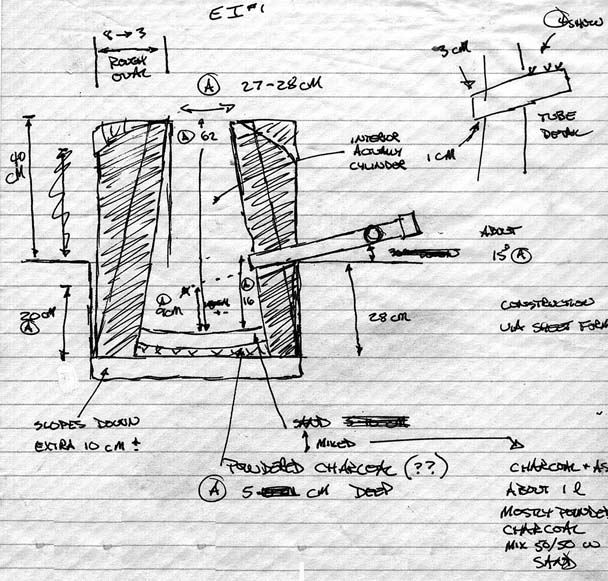 EI#1
8 → 3
ROUGH
OVAL
Ⓐ 27-28 CM
Ⓐ 62
INTERIOR
ACTUALLY
CYLINDER
3 CM
1 CM
TUBE
DETAIL
40
CM
ABOUT
15° Ⓐ
Ⓐ
16
20 CM
Ⓐ
28 CM
CONSTRUCTION
VIA SHEET FORM
SLOPES DOWN
EXTRA 10 CM ±
SAND
MIXED
POWDERED CHARCOAL (??)
Ⓐ 5 CM DEEP
CHARCOAL + AS
ABOUT 1 l
MOSTLY POWDE
CHARCOAL
MIX 50/50 W
SAND